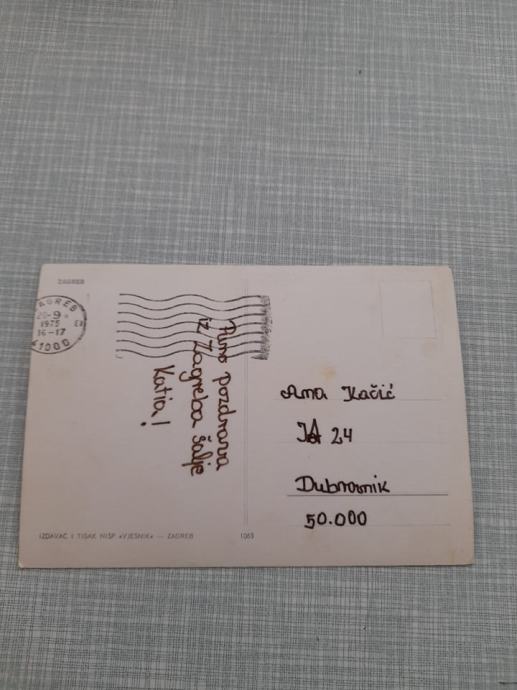 ZAGREB
ZAGREB
20-9
1975
16-17
41000
Puno pozdrava
iz Zagreba šalje
Katia!
Ana Kačić
24
Dubrovnik
50.000
IZDAVAČ I TISAK NIŠP «VJESNIK» — ZAGREB
1063